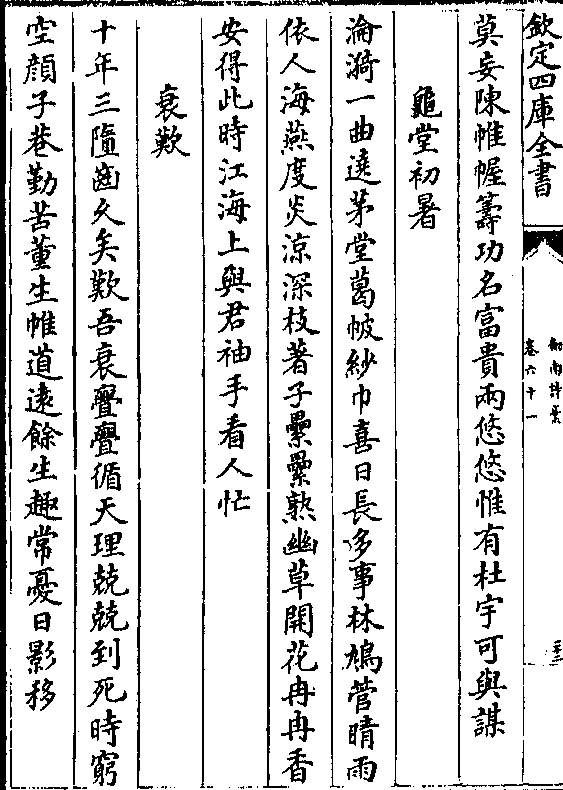 欽定四庫全書
劍南詩藁
卷六十一
莫妄陳帷幄籌功名富貴兩悠悠惟有杜宇可與謀
龜堂初暑
淪漪一曲遶茅堂葛帔紗巾喜日長多事林鳩管晴雨
依人海燕度炎涼深枝著子纍纍熟幽草開花冉冉香
安得此時江海上與君袖手看人忙
衰歎
十年三墮齒久矣歎吾衰亹亹循天理兢兢到死時窮
空顔子巷勤苦董生帷道遠餘生趣常憂日影移